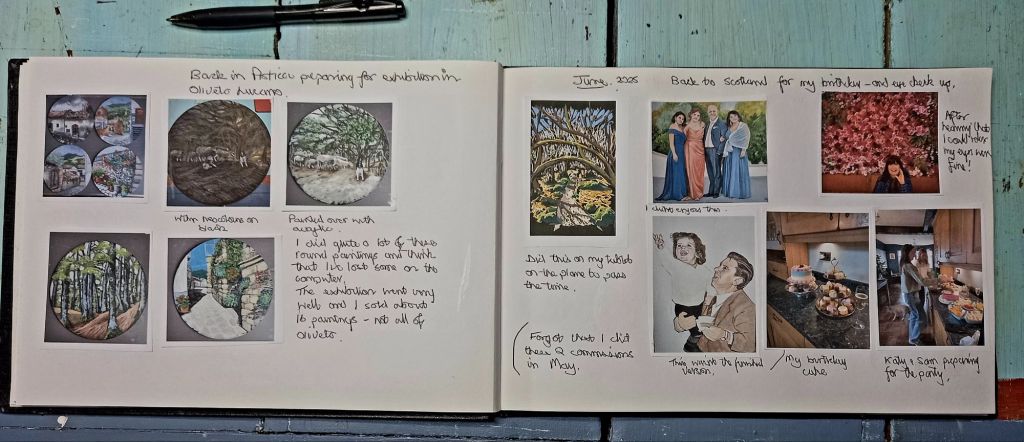 Back in Asticcu preparing for exhibition in
Oliveto Lucano.
With neocolours on
black
Painted over with
acrylic.
I did quite a lot of these
round paintings and think
that I've lost some on the
computer.
The exhibition went very
well and I sold about
16 paintings - not all of
Oliveto.
June, 2025
Back to Scotland for my birthday - and eye check up.
After
hearing that
I could
my eyes were
fine!
I didn't enjoy this.
Did this on my tablet
on the plane to pass
the time.
Forgot that I did
these 2 commissions
in May.
This wasn't the finished
version.
My birthday
cake
Katy + Sam preparing
for the party.